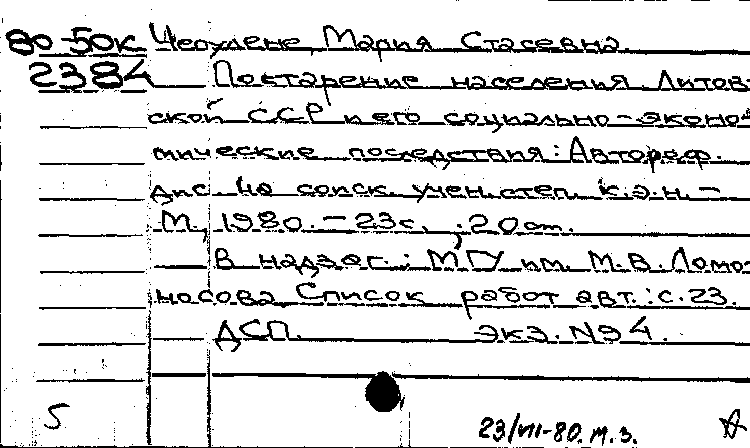 80-50к Чеэулене, Мария Стасевна.
2384 Постарение населения Литов-
ской ССР и его социально-эконо-
мические последствия: Автореф.
дис. на соиск. учен. степ. к.э.н. -
М., 1980. - 23с.; 20 см.
В надзаг.: МГУ им. М.В. Ломо-
носова. Список работ авт.: с. 23.
ДСП. экз. N94.
5 23/VII-80. М.З.